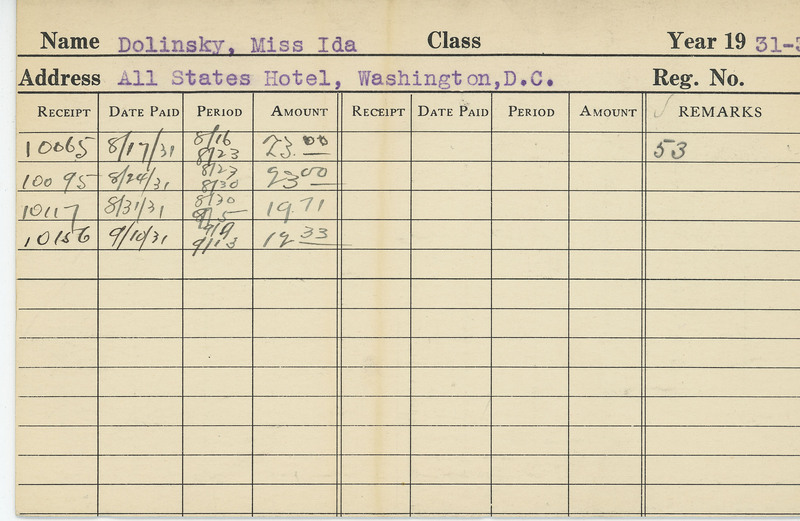 Name Dolinsky, Miss Ida Class Year 19 31-3
Address All States Hotel, Washington,D.C. Reg. No.
RECEIPT DATE PAID PERIOD AMOUNT RECEIPT DATE PAID PERIOD AMOUNT REMARKS
10065 8/17/31 8/16 8/23 23.00 53
10095 8/24/31 8/23 8/30 2300
10117 8/31/31 8/30 19.71
10156 9/10/31 9/9 9/13 12 33